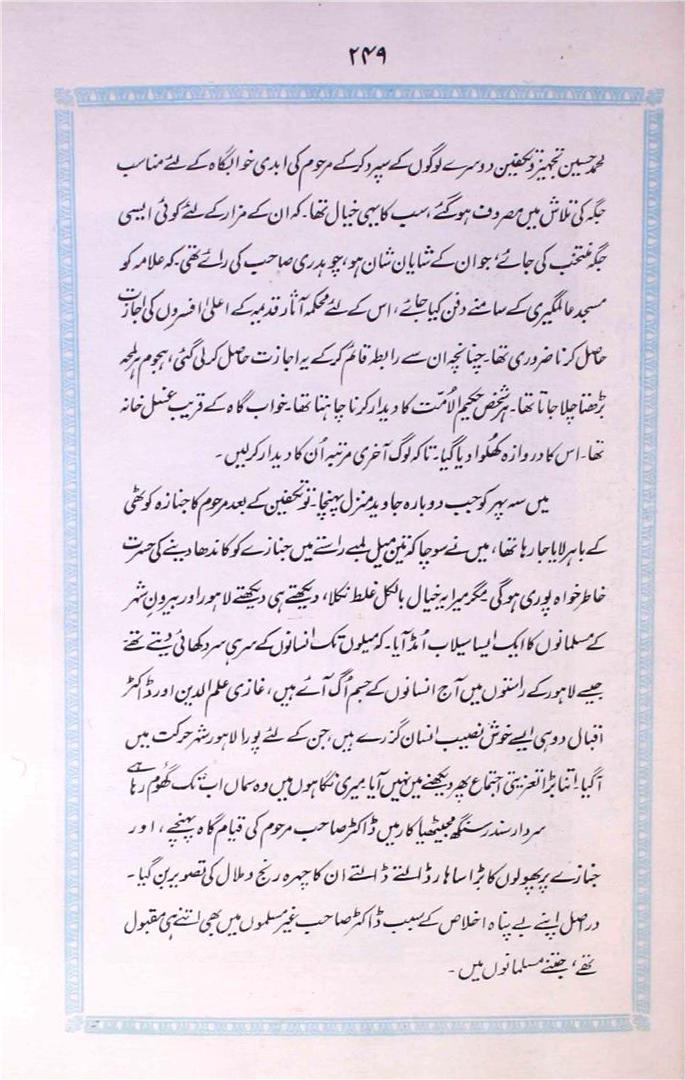 ۲۴۹
محمد حسین تجہیز و تکفین دوسرے لوگوں کے سپرد کر کے مرحوم کی ابدی خوابگاہ کے لئے مناسب
جگہ کی تلاش میں مصروف ہو گئے، سب کا یہی خیال تھا۔ کہ ان کے مزار کے لئے کوئی ایسی
جگہ منتخب کی جائے، جو ان کے شایان شان ہو، چوہدری صاحب کی رائے تھی۔ کہ علامہ کو
مسجد عالمگیری کے سامنے دفن کیا جائے، اس کے لئے محکمہ آثار قدیمہ کے اعلیٰ افسروں کی اجازت
حاصل کرنا ضروری تھا۔ چنانچہ ان سے رابطہ قائم کر کے یہ اجازت حاصل کر لی گئی، ہجوم ہر لمحہ
بڑھتا چلا جاتا تھا۔ ہر شخص حکیم الامّت کا دیدار کرنا چاہتا تھا۔ خواب گاہ کے قریب غسل خانہ
تھا۔ اس کا دروازہ کھُلوا دیا گیا۔ تاکہ لوگ آخری مرتبہ اُن کا دیدار کر لیں۔
میں سہ پہر کو جب دوبارہ جاوید منزل پہنچا۔ تو تکفین کے بعد مرحوم کا جنازہ کوٹھی
کے باہر لایا جا رہا تھا، میں نے سوچا کہ تین میل لمبے راستے میں جنازے کو کاندھا دینے کی حسرت
خاطر خواہ پوری ہو گی مگر میرا یہ خیال بالکل غلط نکلا، دیکھتے ہی دیکھتے لاہور اور بیرونِ شہر
کے مسلمانوں کا ایک ایسا سیلاب اُمڈ آیا۔ کہ میلوں تک انسانوں کے سر ہی سر دکھائی دیتے تھے
جیسے لاہور کے راستوں میں آج انسانوں کے جسم اُگ آئے ہیں، غازی علم الدین اور ڈاکٹر
اقبال دو ہی ایسے خوش نصیب انسان گزرے ہیں، جن کے لئے پورا لاہور شہر حرکت میں
آ گیا۔ اتنا بڑا تعزیتی اجتماع پھر دیکھنے میں نہیں آیا۔ میری نگاہوں میں وہ سماں اب تک گھُوم رہا ہے
سردار سندر سنگھ مجیٹھیا کار میں ڈاکٹر صاحب مرحوم کی قیام گاہ پہنچے، اور
جنازے پر پھولوں کا بڑا سا ہار ڈالتے ڈالتے ان کا چہرہ رنج و ملال کی تصویر بن گیا۔
دراصل اپنے بے پناہ اخلاص کے سبب ڈاکٹر صاحب غیر مسلموں میں بھی اتنے ہی مقبول
تھے، جتنے مسلمانوں میں۔